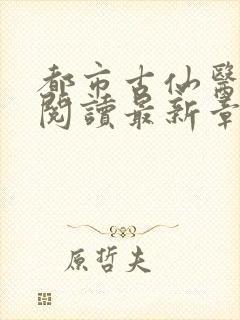 都市古仙醫
閱讀最新章
原哲夫